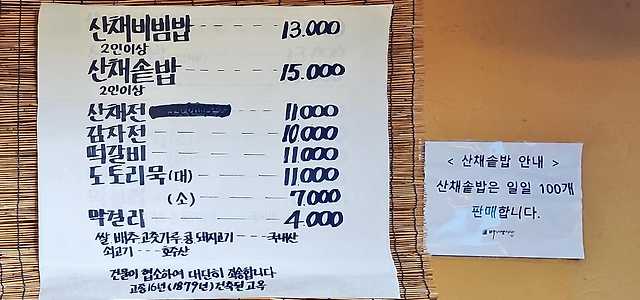 산채비빔밥 13.000
2인이상
산채솥밥 15.000
2인이상
산채전 11000
감자전 10.000
떡갈비 11000
도토리묵(대) 11000
(소) 7,000
막걸리 4.000
쌀 배추 고춧가루 콩 돼지고기 국내산
쇠고기 호주산
건물이 협소하여 대단히 죄송합니다
고종16년(1879년)건축된고옥
< 산채솥밥 안내 >
산채솥밥은 일일 100개
판매합니다.